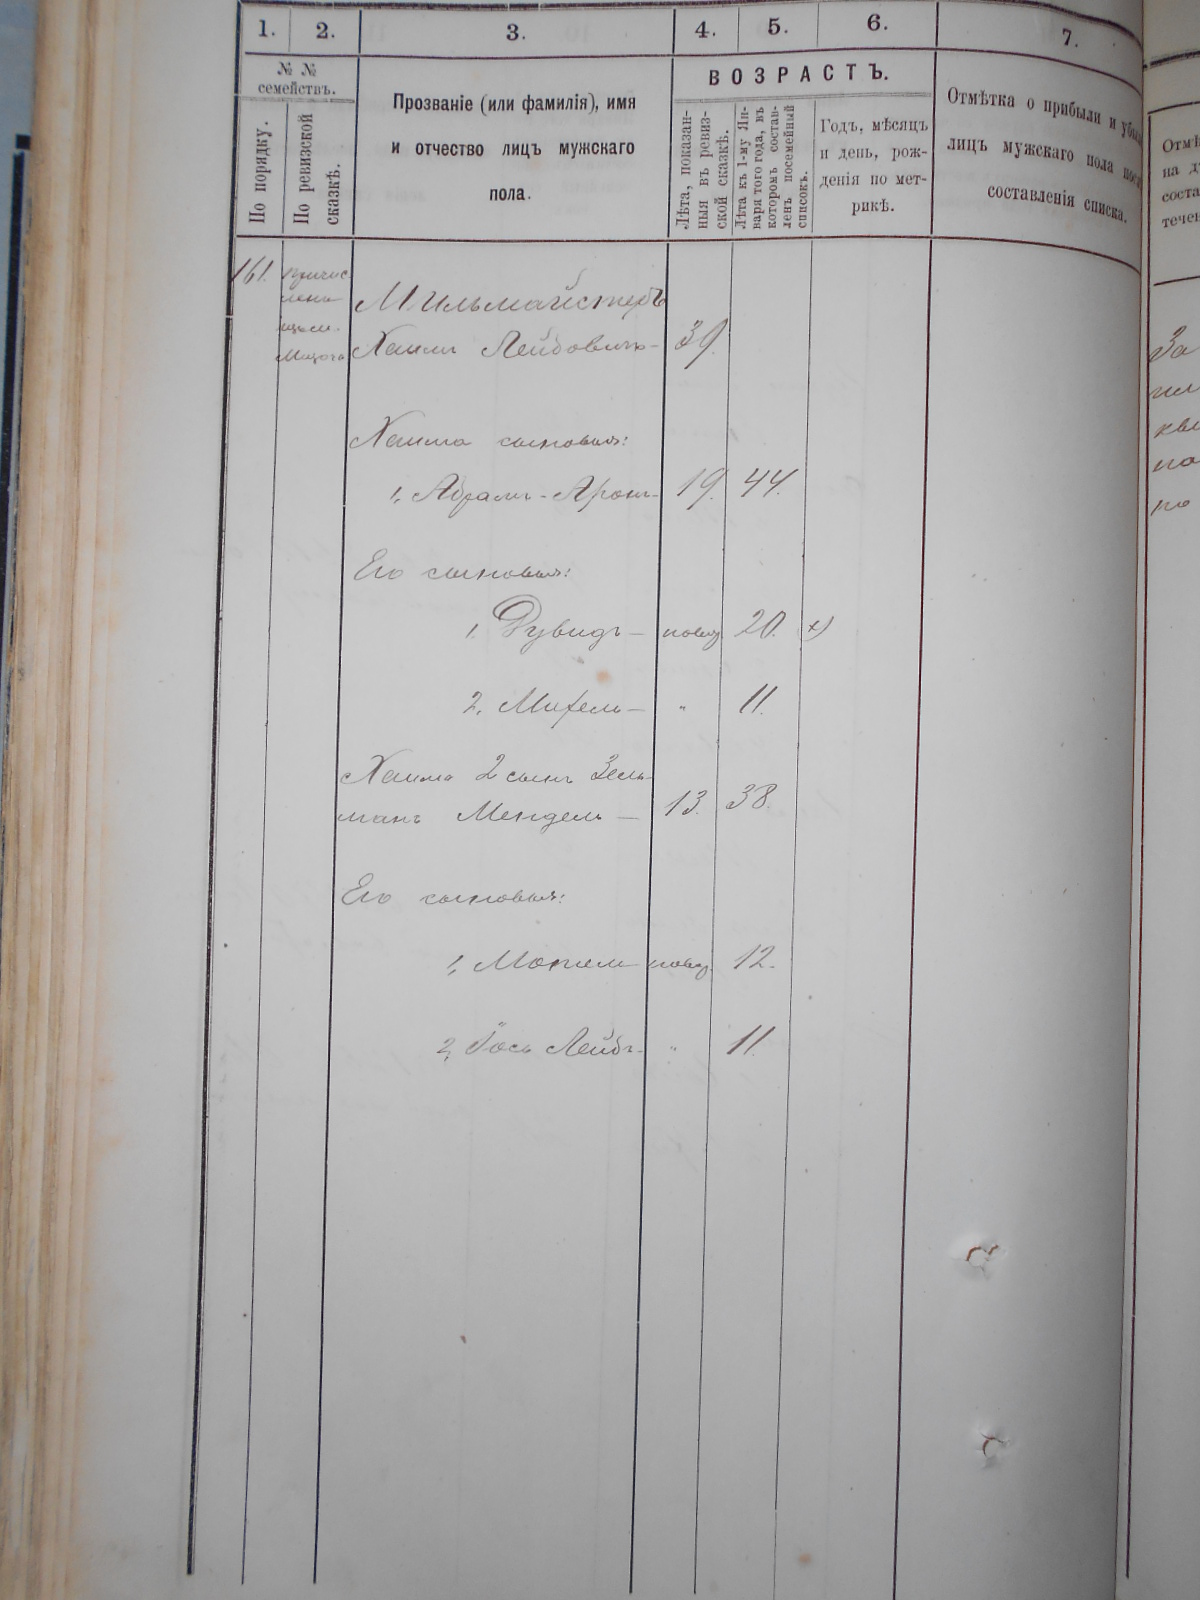 1. 2. 3. 4. 5. 6. 7.
№ №
семействъ.
По порядку.
По ревизской
сказкѣ.
Прозваніе (или фамилія), имя
и отчество лицъ мужскаго
пола.
ВОЗРАСТЪ.
Лѣта, показан-
ныя въ ревиз-
ской сказкѣ.
Лѣта къ 1-му Ян-
варя того года, въ
которомъ состав-
ленъ посемейный
списокъ.
Годъ, мѣсяцъ
и день, рож-
денія по мет-
рикѣ.
Отмѣтка о прибыли и убыли
лицъ мужскаго пола послѣ
составленія списка.
161. причис
лена
Мильмайстеръ
Хаимъ Лейбовичъ - 39.
Хаима сыновья:
1, Абрамъ-Аронъ- 19. 44.
Его сыновья:
1. Дувидъ - новор 20. х)
2. Михель - " 11.
Хаима 2 сынъ Зель-
манъ Мендель - 13. 38.
Его сыновья:
1, новор. 12.
2, Іось Лейбъ- " 11.
Отмѣ
на д
соста
течен
За
по